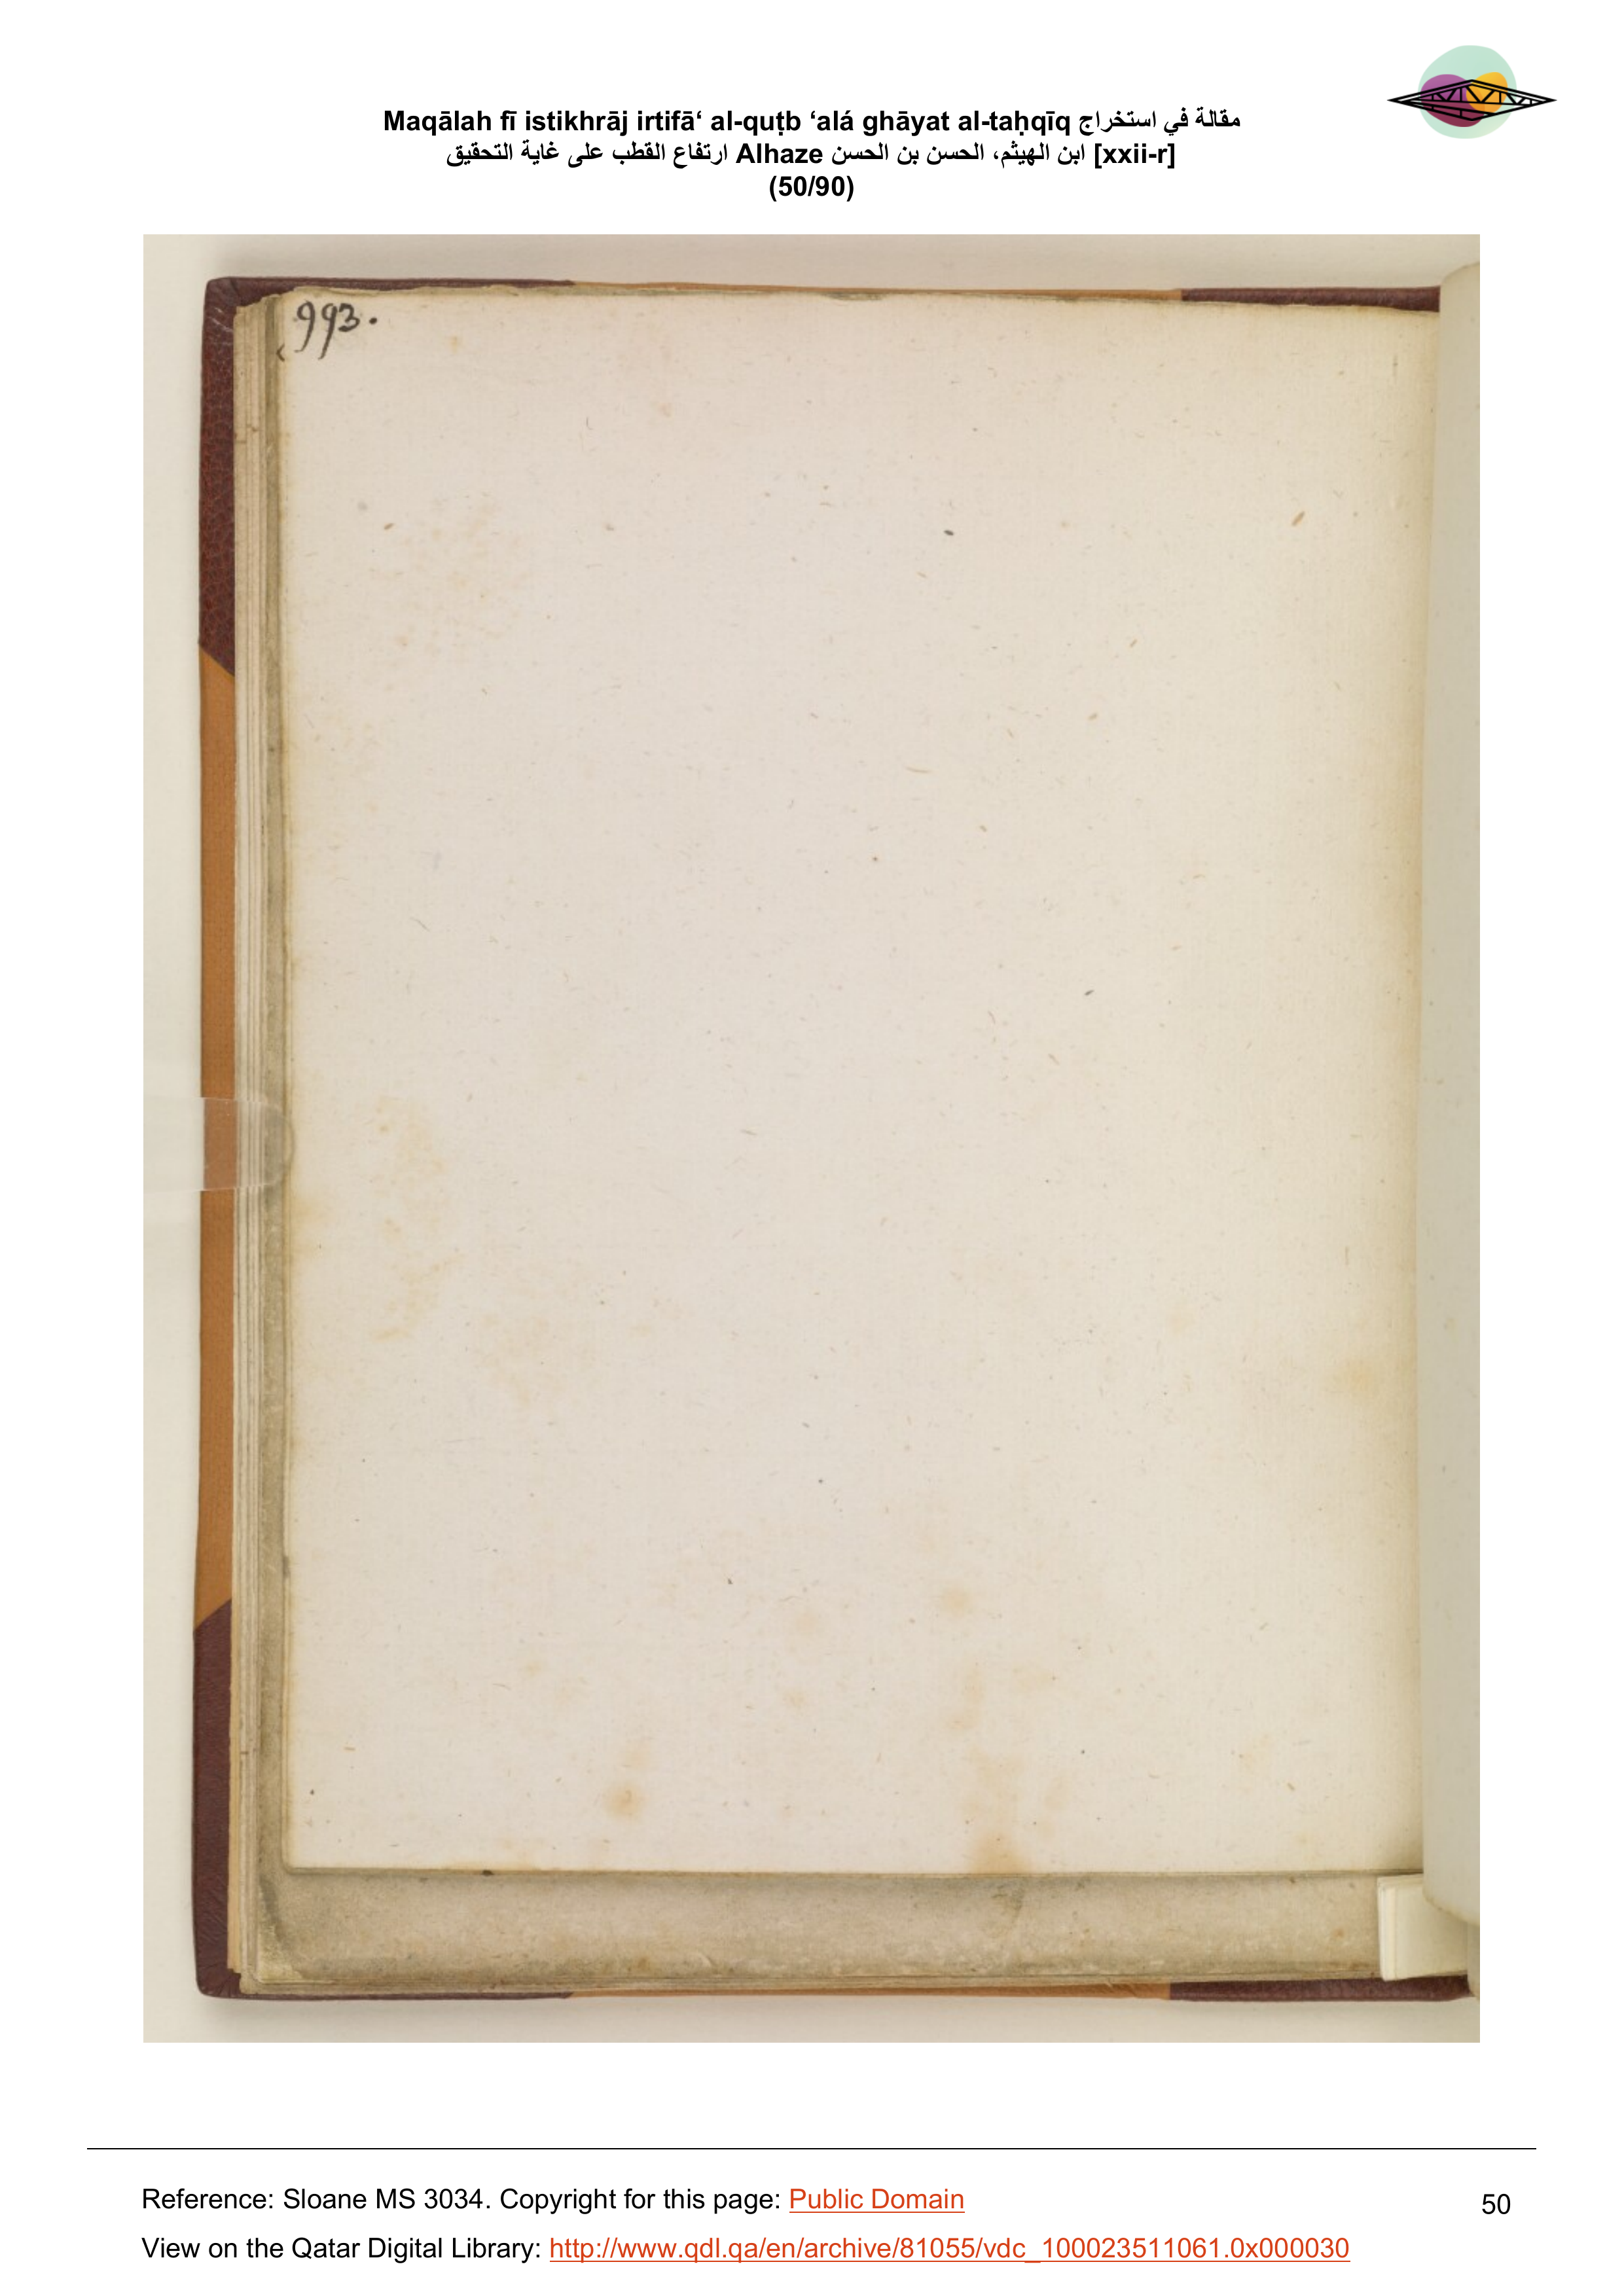 Maqālah fī istikhrāj irtifā‘ al-quṭb ‘alá ghāyat al-taḥqīq مقالة في استخراج
ارتفاع القطب على غاية التحقيق Alhaze ابن الهيثم، الحسن بن الحسن [xxii-r]
(50/90)
993.
Reference: Sloane MS 3034. Copyright for this page: Public Domain
50
View on the Qatar Digital Library: http://www.qdl.qa/en/archive/81055/vdc_100023511061.0x000030